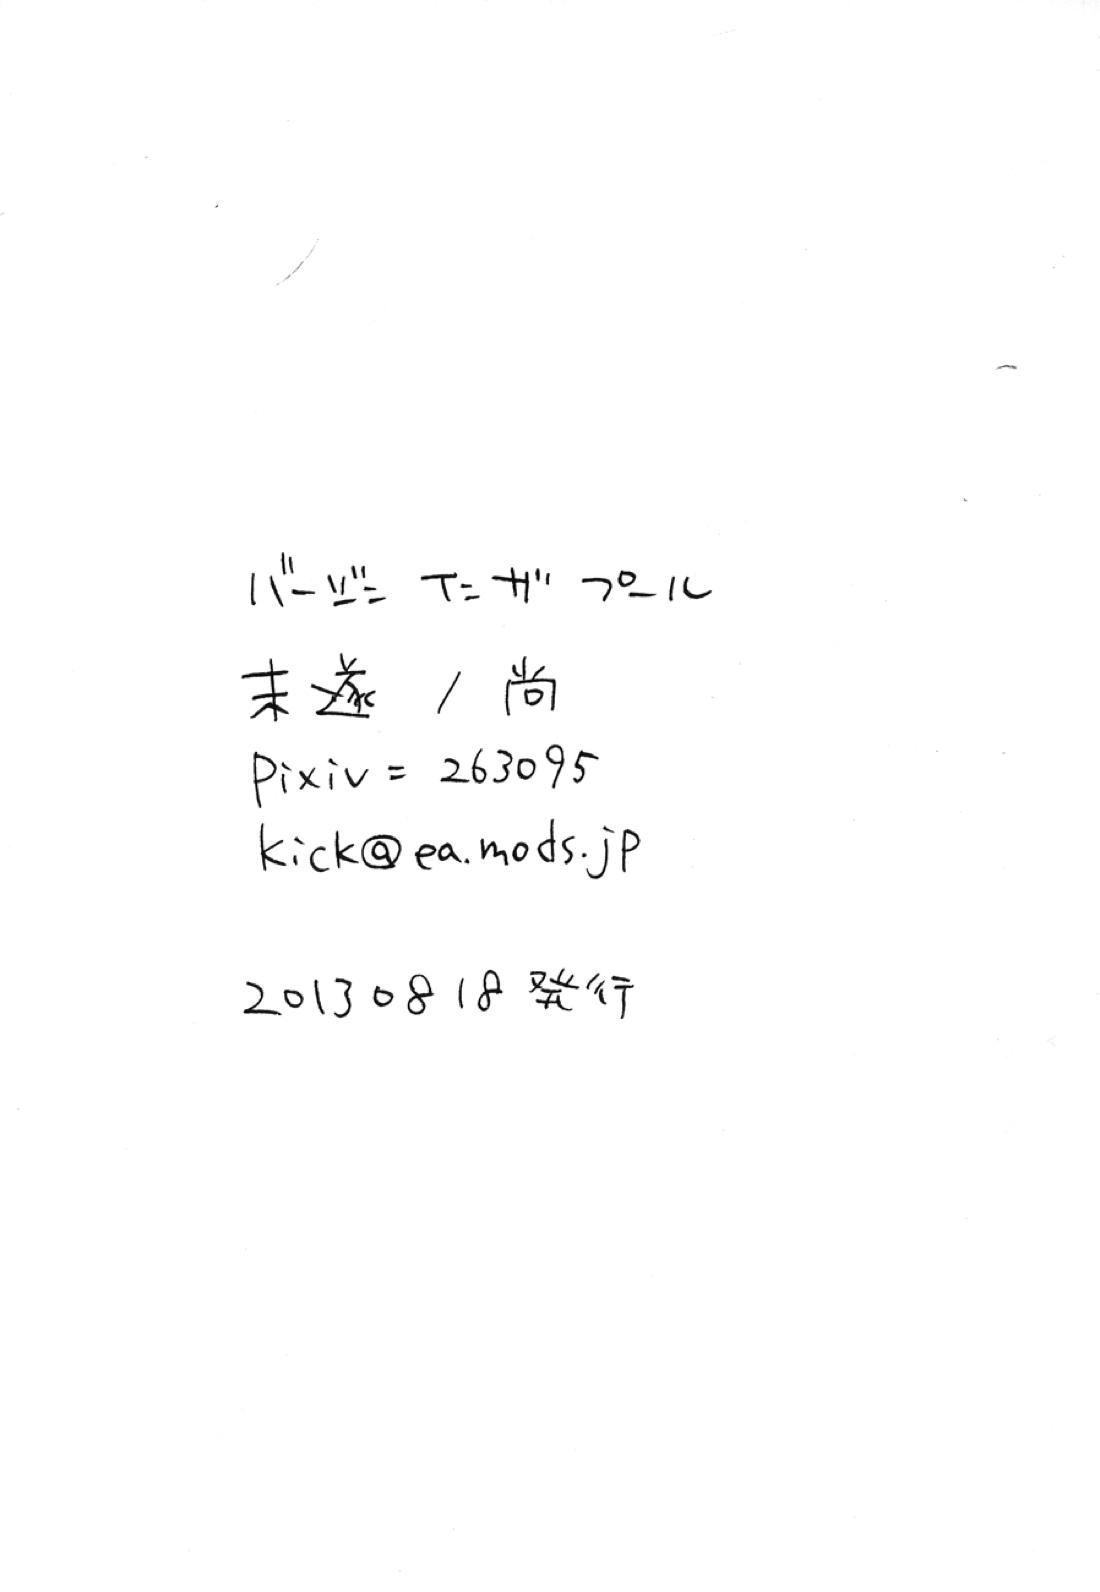 バージニ T=ザ プール
未遂 / 尚
pixiv = 263095
kick@ea.mods.jp
20130818発行